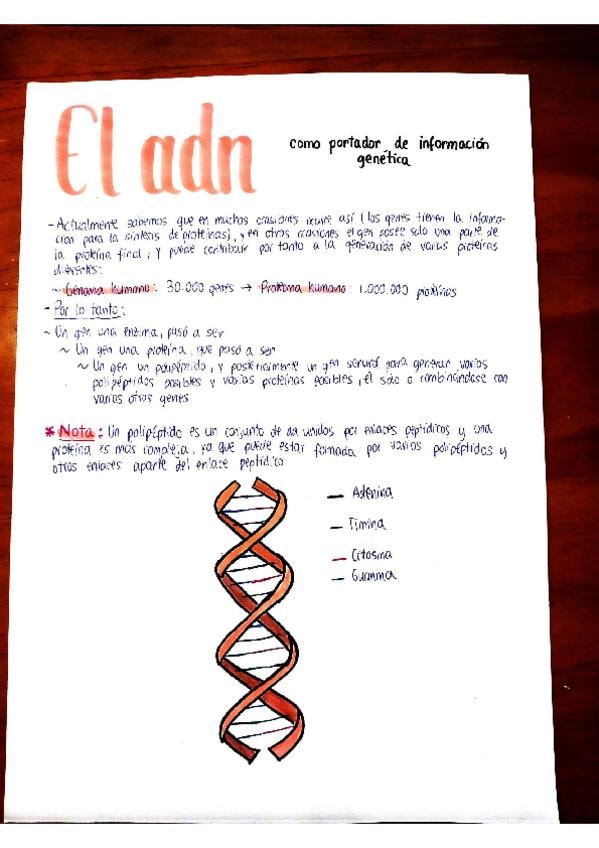 El adn
como portador de información
genética
- Actualmente sabemos que en muchas ocasiones ocurre así (los genes tienen la informa-
ción para la síntesis de proteínas), y en otras ocasiones el gen posee solo una parte de
la proteína final, y puede contribuir por tanto a la generación de varias proteínas
diferentes:
~ Genoma humano: 30.000 genes → Proteoma humano: 1.000.000 proteínas
- Por lo tanto:
~ Un gen una enzima, pasó a ser
~ Un gen una proteína, que pasó a ser
~ Un gen un polipéptido, y posteriormente un gen servirá para generar varios
polipéptidos posibles y varias proteínas posibles, él solo o combinándose con
varios otros genes
* Nota: Un polipéptido es un conjunto de aa unidos por enlaces peptídicos y una
proteína es más compleja, ya que puede estar formada por varios polipéptidos y
otros enlaces aparte del enlace peptídico
— Adenina
— Timina
— Citosina
— Guanina